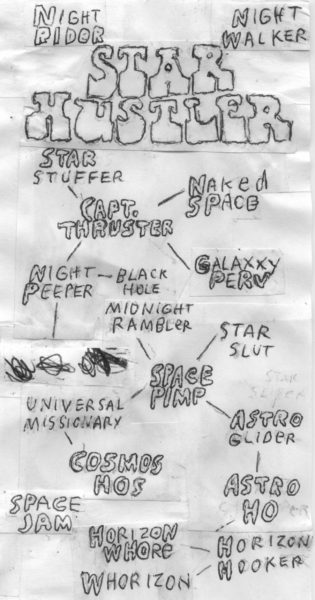 NIGHT
RIDOR
NIGHT
WALKER
STAR
HUSTLER
STAR
STUFFER
NAKeD
SPACE
CAPT.
THRUSTER
GALAXXY
PERV
NIGHT
PEEPER
BLACK
HOLE
MIDNIGHT
RAMBLER
STAR
SLUT
SPACE
PIMP
STAR
UNIVERSAL
MISSIONARY
ASTRO
GLIDER
COSMOS
HOS
ASTRO
HO
SPACE
JAM
HORIZON
WHORE
HORIZON
HOOKER
WHORIZON